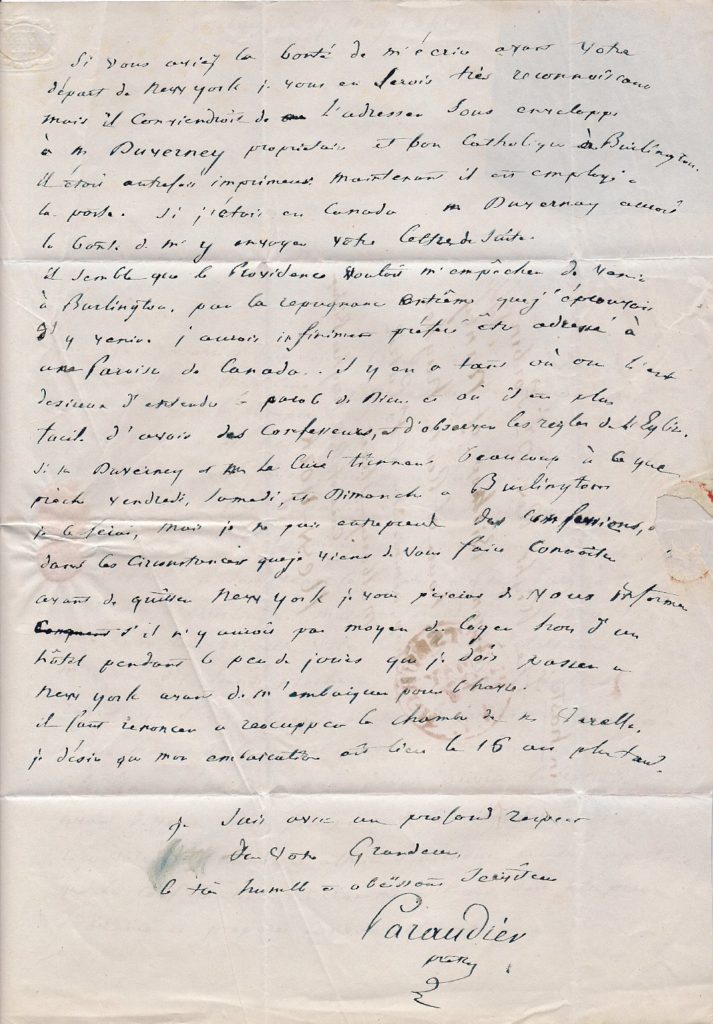 Si vous aviez la bonté de m'écrire avant votre
départ de New york je vous en serois très reconnoissant
mais il conviendroit de l'adresser sous enveloppe
à m Duverney propriétaire et bon Catholique à Burlington.
il étoit autrefois imprimeur. maintenant il est employé a
la poste. Si j'étois en Canada m Duvernay auroit
la bonté de m'y envoyer votre lettre de suite.
il semble que la Providence vouloit m'empêcher de venir
à Burlington, par la repugnance extrême que j'éprouvois
d'y venir. j'aurois infiniment préféré être adressé à
une Paroisse de Canada.. il y en a tant où on est
desireux d'entendre la parole de Dieu et où il est plus
facile d'avoir des Confesseurs, et d'observer les règles de l'Eglise.
Si m Duverney et m le Curé tiennent beaucoup à ce que
prêche vendredi, Samedi, et Dimanche a Burlington
je le ferai, mais je ne puis entreprendre des confessions,
dans les circonstances que je viens de vous faire connoître
avant de quitter New york je vous prierois de vous informer
s'il n'y auroit pas moyen de loger hors d'un
hôtel pendant le peu de jours que je dois passer a
New york avant de m'embarquer pour le havre.
il faut renoncer a reoccupper la chambre de m
je désire que mon embarcation ait lieu le 16 au plus tard.
je suis avec un profond respect
De votre Grandeur,
le très humble et obéissant Serviteur
Paraudier
prêtre